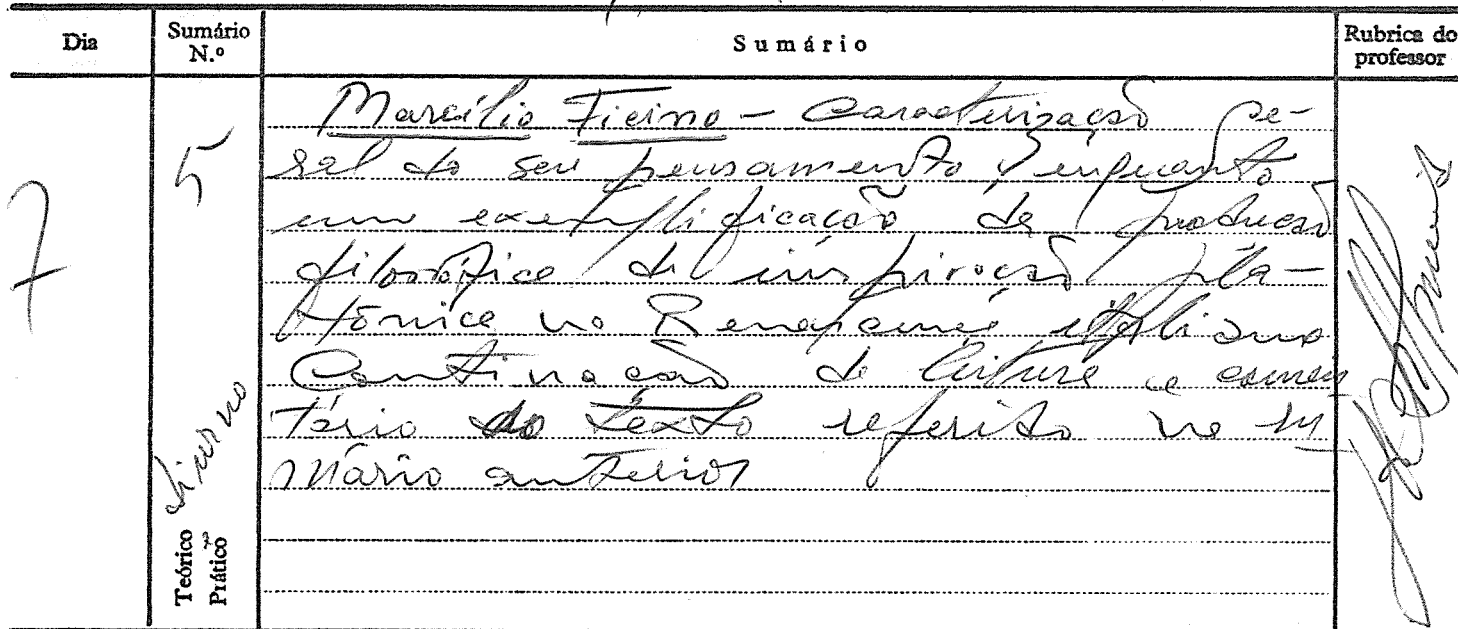 Dia
Sumário
N.º
Sumário
Rubrica do
professor
7
5
Marcílio Ficino - Caracterização ge-
ral do seu pensamento, enquanto
uma exemplificação de produção
filosófica de inspiração pla-
tónica no Renascimento italiano
Continuação da leitura e comen
tário do texto referido no su
mário anterior
Teórico
Prático